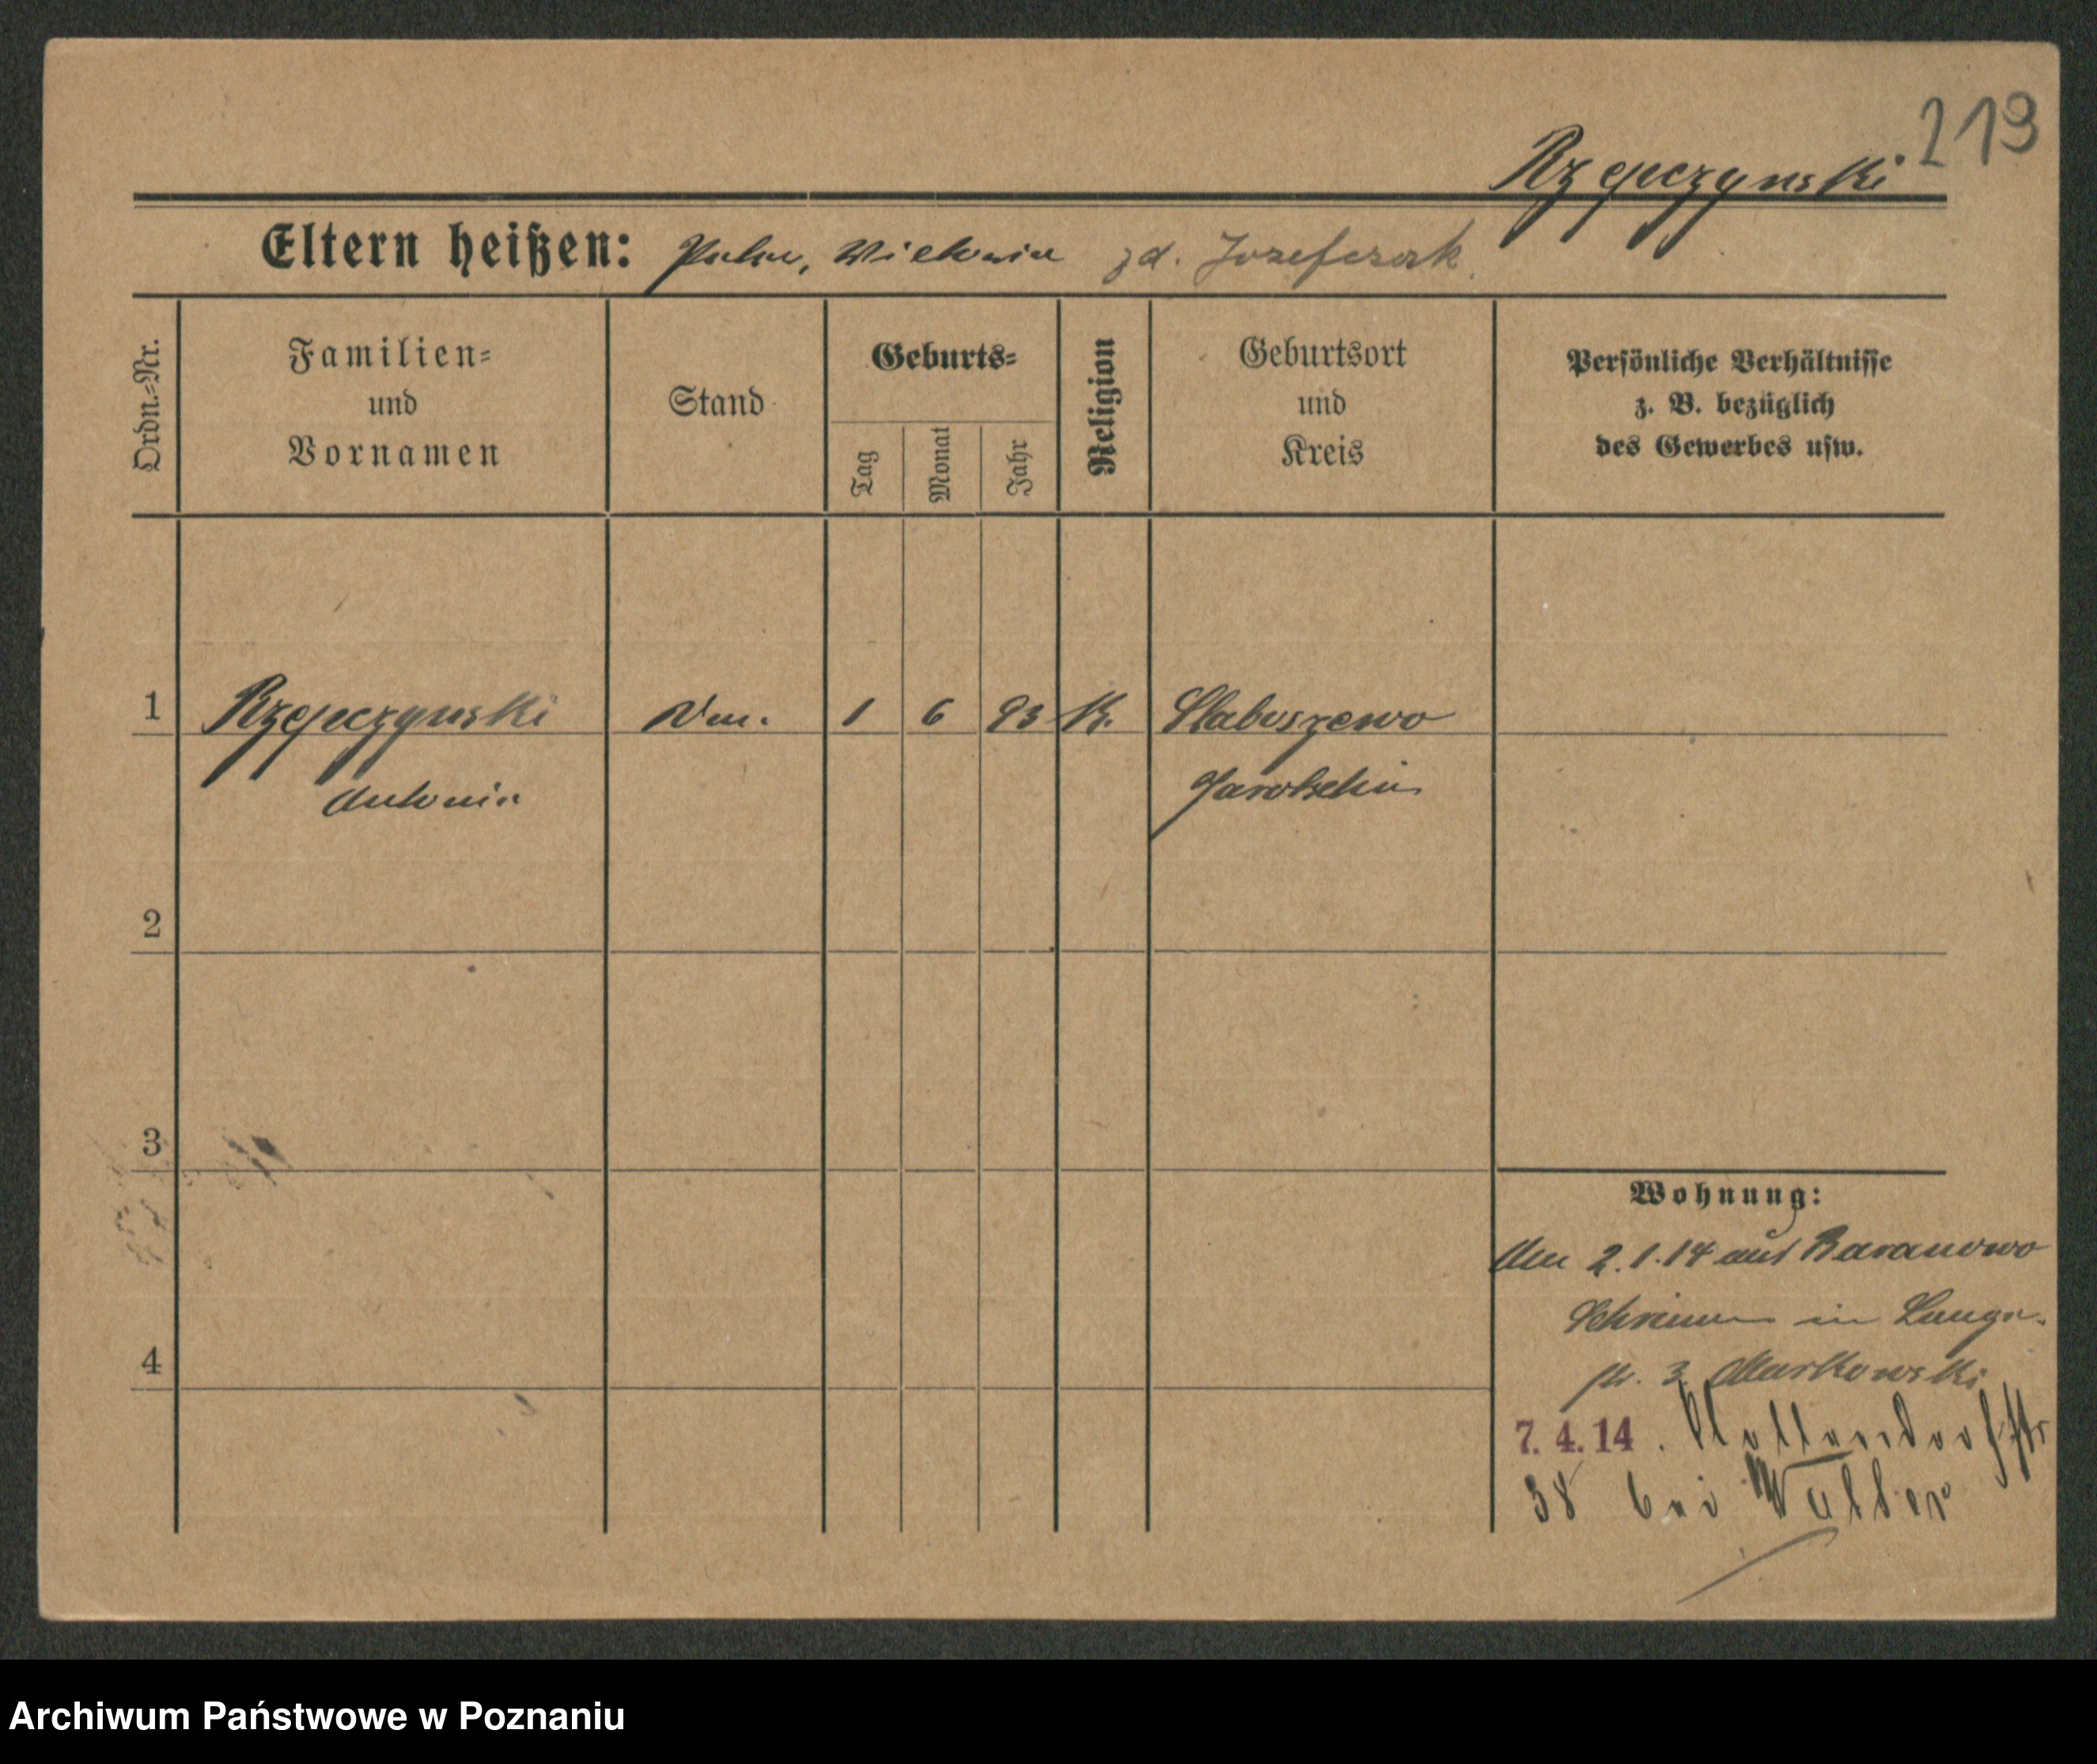 219
Rzepczynski
Eltern heißen: Peter, Wiktoria zd. Jozefczak
Ordn.=Nr.
Familien=
und
Vornamen
Stand
Geburts=
Tag
Monat
Jahr
Religion
Geburtsort
und
Kreis
Persönliche Verhältnisse
z. B. bezüglich
des Gewerbes usw.
1 Rzepczynski 1 6 93 K. Slaboszewo
Antonia Jarotschin
2
3
4
Wohnung:
Am 2.1.14 aus Baranowo
Schrimm in Lange-
str. 3 Markowski
7. 4. 14.
38 bei
Archiwum Państwowe w Poznaniu